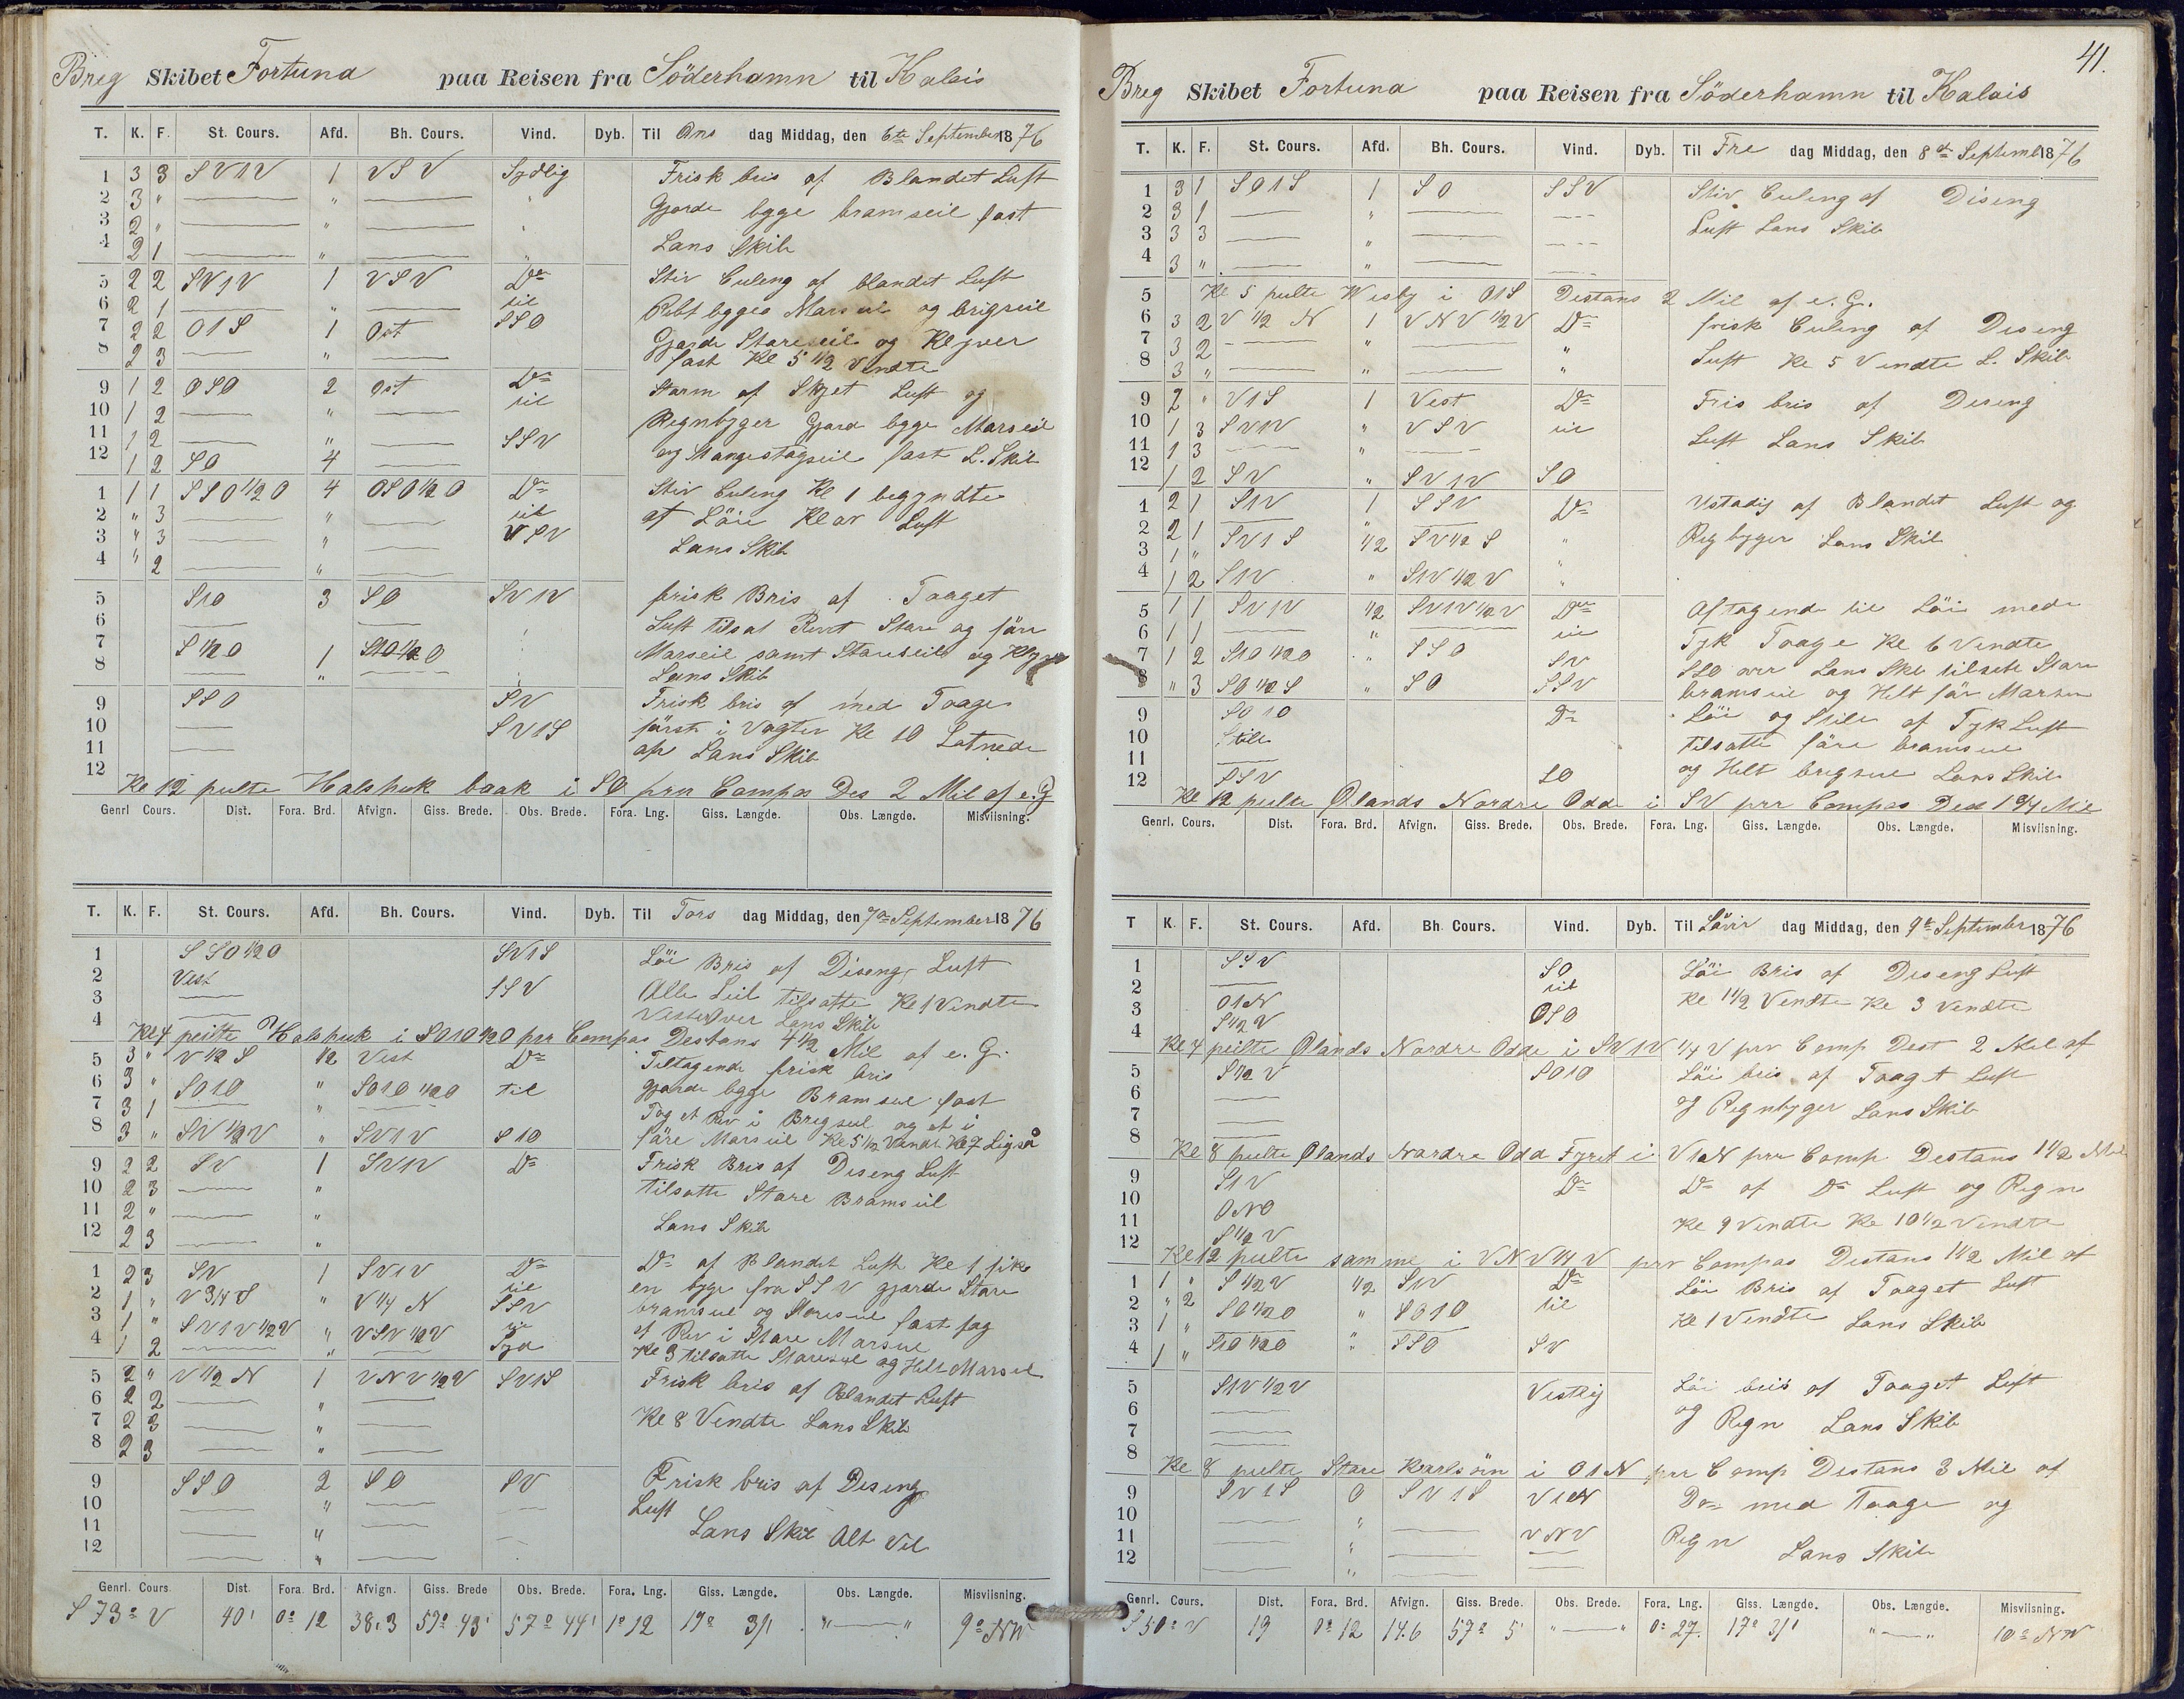 Breg Skibet Fortuna paa Reisen fra Söderhamn til Kalais
T. K. F. St. Cours. Afd. Bh. Cours. Vind. Dyb. Til Ons dag Middag, den 6te September 1876
1 3 3 SV1V 1 VSV Sydlig Frisk bris af Blandet Luft
2 3 " — " — " Gjorde bygge bramseil fast
3 2 " — " — " Lans Skib
4 2 1 — " — "
5 2 2 SV1V 1 VSV Do Stiv Culing af blandet Luft
6 2 1 — " — til Rebt bgges Marseil og brigseil
7 2 2 O1S 1 Ost SSO Gjorde Stareseil og Klyver
8 2 3 — " — fast Kl 5 1/2 Vendte
9 1 2 OSO 2 Ost Do Storm af Skyet Luft og
10 1 2 — " — til Regnbyger Gjord bgge Marseil
11 1 2 — " — SSV og Mangestagseil fast L. Skib
12 1 2 SO 4 —
1 1 1 SSO 1/2 O 4 OSO 1/2 O Do Stiv Culing Kl 1 begyndte
2 " 3 — " — til at Löie Klar Luft
3 " 3 — " — VSV Lans Skib
4 " 2 — " —
5 S1O 3 SO SV1V frisk Bris af Taaget
6 — — Luft tilsat Revt Stare og före
7 S 1/2 O 1 S1O 1/2 O Marseil samt Stareseil og Klyver
8 — " — Lans Skib
9 SSO SV Frisk bris af med Taage
10 — SV1S först i Vagten Kl 10 Latnede
11 — op Lans Skib
12
Kl 12 peilte Halshuk baak i SO prr Compas Des 2 Mil af e. G
Genrl Cours. Dist. Fora. Brd. Afvign. Giss. Brede. Obs. Brede. Fora. Lng. Giss. Længde. Obs. Længde. Misviisning.
T. K. F. St. Cours. Afd. Bh. Cours. Vind. Dyb. Til Tors dag Middag, den 7de September 1876
1 SSO 1/2 O SV1S Löi Bris af Diseng Luft
2 Vest SSV Alle Seil tilsatte Kl 1 Vendte
3 — Vestover Lans Skib
4 —
Kl 4 peilte Halshuk i SO1O 1/2 O prr Compas Destans 4 1/2 Mil af e. G.
5 3 " V 1/2 S 1/2 Vest Do Tiltagende frisk bris
6 3 " SO1O " SO1O 1/2 O til gjorde bgge Bramseil fast
7 3 1 — " — Tog et Rev i Bregseil og et i
8 3 " SV 1/2 V " SV1V S1O före Marseil Kl 5 1/2 Vendt Kl 7 Ligeså
9 2 2 SV 1 SV1V Do Frisk Bris af Diseng Luft
10 2 3 — " tilsatte Stare Bramseil
11 2 " — " Lans Skib
12 2 3 — "
1 2 3 SV 1 SV1V Do Do af Blandet Luft Kl 1 fik
2 1 " V 3/4 S " V 1/4 N til SSV en byge fra SSV gjorde Stare
3 1 " SV1V 1/2 V " VSV 1/2 V til bramseil og Storeseil fast tog
4 1 2 — " — Syd et Rev i Stare Marseil
Kl 3 tilsatte Stareseil og Helt Marseil
5 2 " V 1/2 N 1 VNV 1/2 V SV1S Frisk bris af Blandet Luft
6 2 2 — " — Kl 8 Vendte Lans Skib
7 2 3 — " —
8 2 3 — " —
9 SSO 2 SO SV Frisk bris af Diseng
10 — " — — Luft
11 — " — — Lans Skib Alt Vel
12 — " —
Genrl. Cours. Dist. Fora. Brd. Afvign. Giss. Brede Obs. Brede. Fora. Lng. Giss. Længde. Obs. Længde. Misviisning.
S 73° V 40' 0° 12 38.3 57° 43' 57° 44' 1° 12 17° 31 " — " 9° NW
41.
Breg Skibet Fortuna paa Reisen fra Söderhamn til Kalais
T. K. F. St. Cours. Afd. Bh. Cours. Vind. Dyb. Til Fre dag Middag, den 8de Septemb 1876
1 3 1 SO1S 1 SO SSV Stiv Culing af Diseng
2 3 1 — " — — Luft Lans Skib
3 3 3 — " — —
4 3 " — " — —
5 Kl 5 peilte Wisby i O1S Destans 2 Mil af e. G.
6 3 2 V 1/2 N 1 VNV 1/2 V Do frisk Culing af Diseng
7 3 2 — " — " Luft Kl 5 Vendte L. Skib
8 3 " — " — "
9 2 " V1S 1 Vest Do Fris bris af Diseng
10 1 3 SV1V " VSV til Luft Lans Skib
11 1 3 — " —
12 1 2 SV " SV1V SO
1 2 1 S1V 1 SSV Do Ustadig af Blandet Luft og
2 2 1 — " — Regbyger Lans Skib
3 1 " SV1S 1/2 SV 1/2 S "
4 1 2 S1V " S1V 1/2 V "
5 1 1 SV1V 1/2 SV1V 1/2 V Do Aftagende til Löi mede
6 1 1 — " — til Tyk Taage Kl 6 Vendte
7 1 2 S1O 1/2 O " SSO SV SSO over Lans Ske tilsete Stare
8 " 3 SO 1/2 S " SO SSV bramseil og Helt för Marsen
9 SO1O Do Löi og Stile af Tyk Luft
10 Stile tilsatte före bramseil
11 — og Helt bregseil Lans Skib
12 SSV SO
Kl 12 peilte Ølands Nordre Odde i SV prr Compas Des 1 3/4 Mil
Genrl. Cours. Dist. Fora. Brd. Afvign. Giss. Brede. Obs. Brede. Fora. Lng. Giss. Længde. Obs. Længde. Misviisning.
T K. F. St. Cours. Afd. Bh. Cours. Vind. Dyb. Til Löver dag Middag, den 9de September 1876
1 SSV SO Löi Bris af Diseng Luft
2 — til Kl 1 1/2 Vendte Kl 3 Vendte
3 O1N OSO
4 S 1/2 V
Kl 4 peilte Ølands Nordre Odde i SV1V 1/4 V prr Comp Dest 2 Mil af
5 S 1/2 V SO1O Löi bris af Taaget Luft
6 — og Regnbyger Lans Skib
7 —
8 —
Kl 8 peilte Ølands Nordre Odd Fyret i V1N prr Comp Destans 1 1/2 Mil
9 S1V Do Do af Do Luft og Regn
10 ONO Kl 9 Vendte Kl 10 1/2 Vendte
11 S 1/2 V
12
Kl 12 peilte samme i VNV 1/4 V prr Compas Destans 1 1/2 Mil af
1 1 " S 1/2 V 1/2 S1V Do Löi Bris af Taaget Luft
2 " 2 SO 1/2 O " SO1O til Kl 1 Vendte Lans Skib
3 1 " — —
4 1 " S1O 1/2 O " SSO SV
5 S1V 1/2 V Vestlig Löi bris af Taaget Luft
6 — og Regn Lans Skib
7 —
8 —
Kl 8 peilte Stare Karlsöen i O1N prr Comp Destans 3 Mil af
9 SV1S 0 SV1S V1N Do med Taage og
10 — " Regn Lans Skib
11 — " — VNV
12 — " — —
Genrl. Cours. Dist. Fora. Brd. Afvign. Giss. Brede. Obs. Brede. Fora. Lng. Giss. Længde. Obs. Længde. Misviisning.
S 50° V 19 0° 12 14.6 57° 5' " — " 0° 27. 17° 31' " — " 10° NW